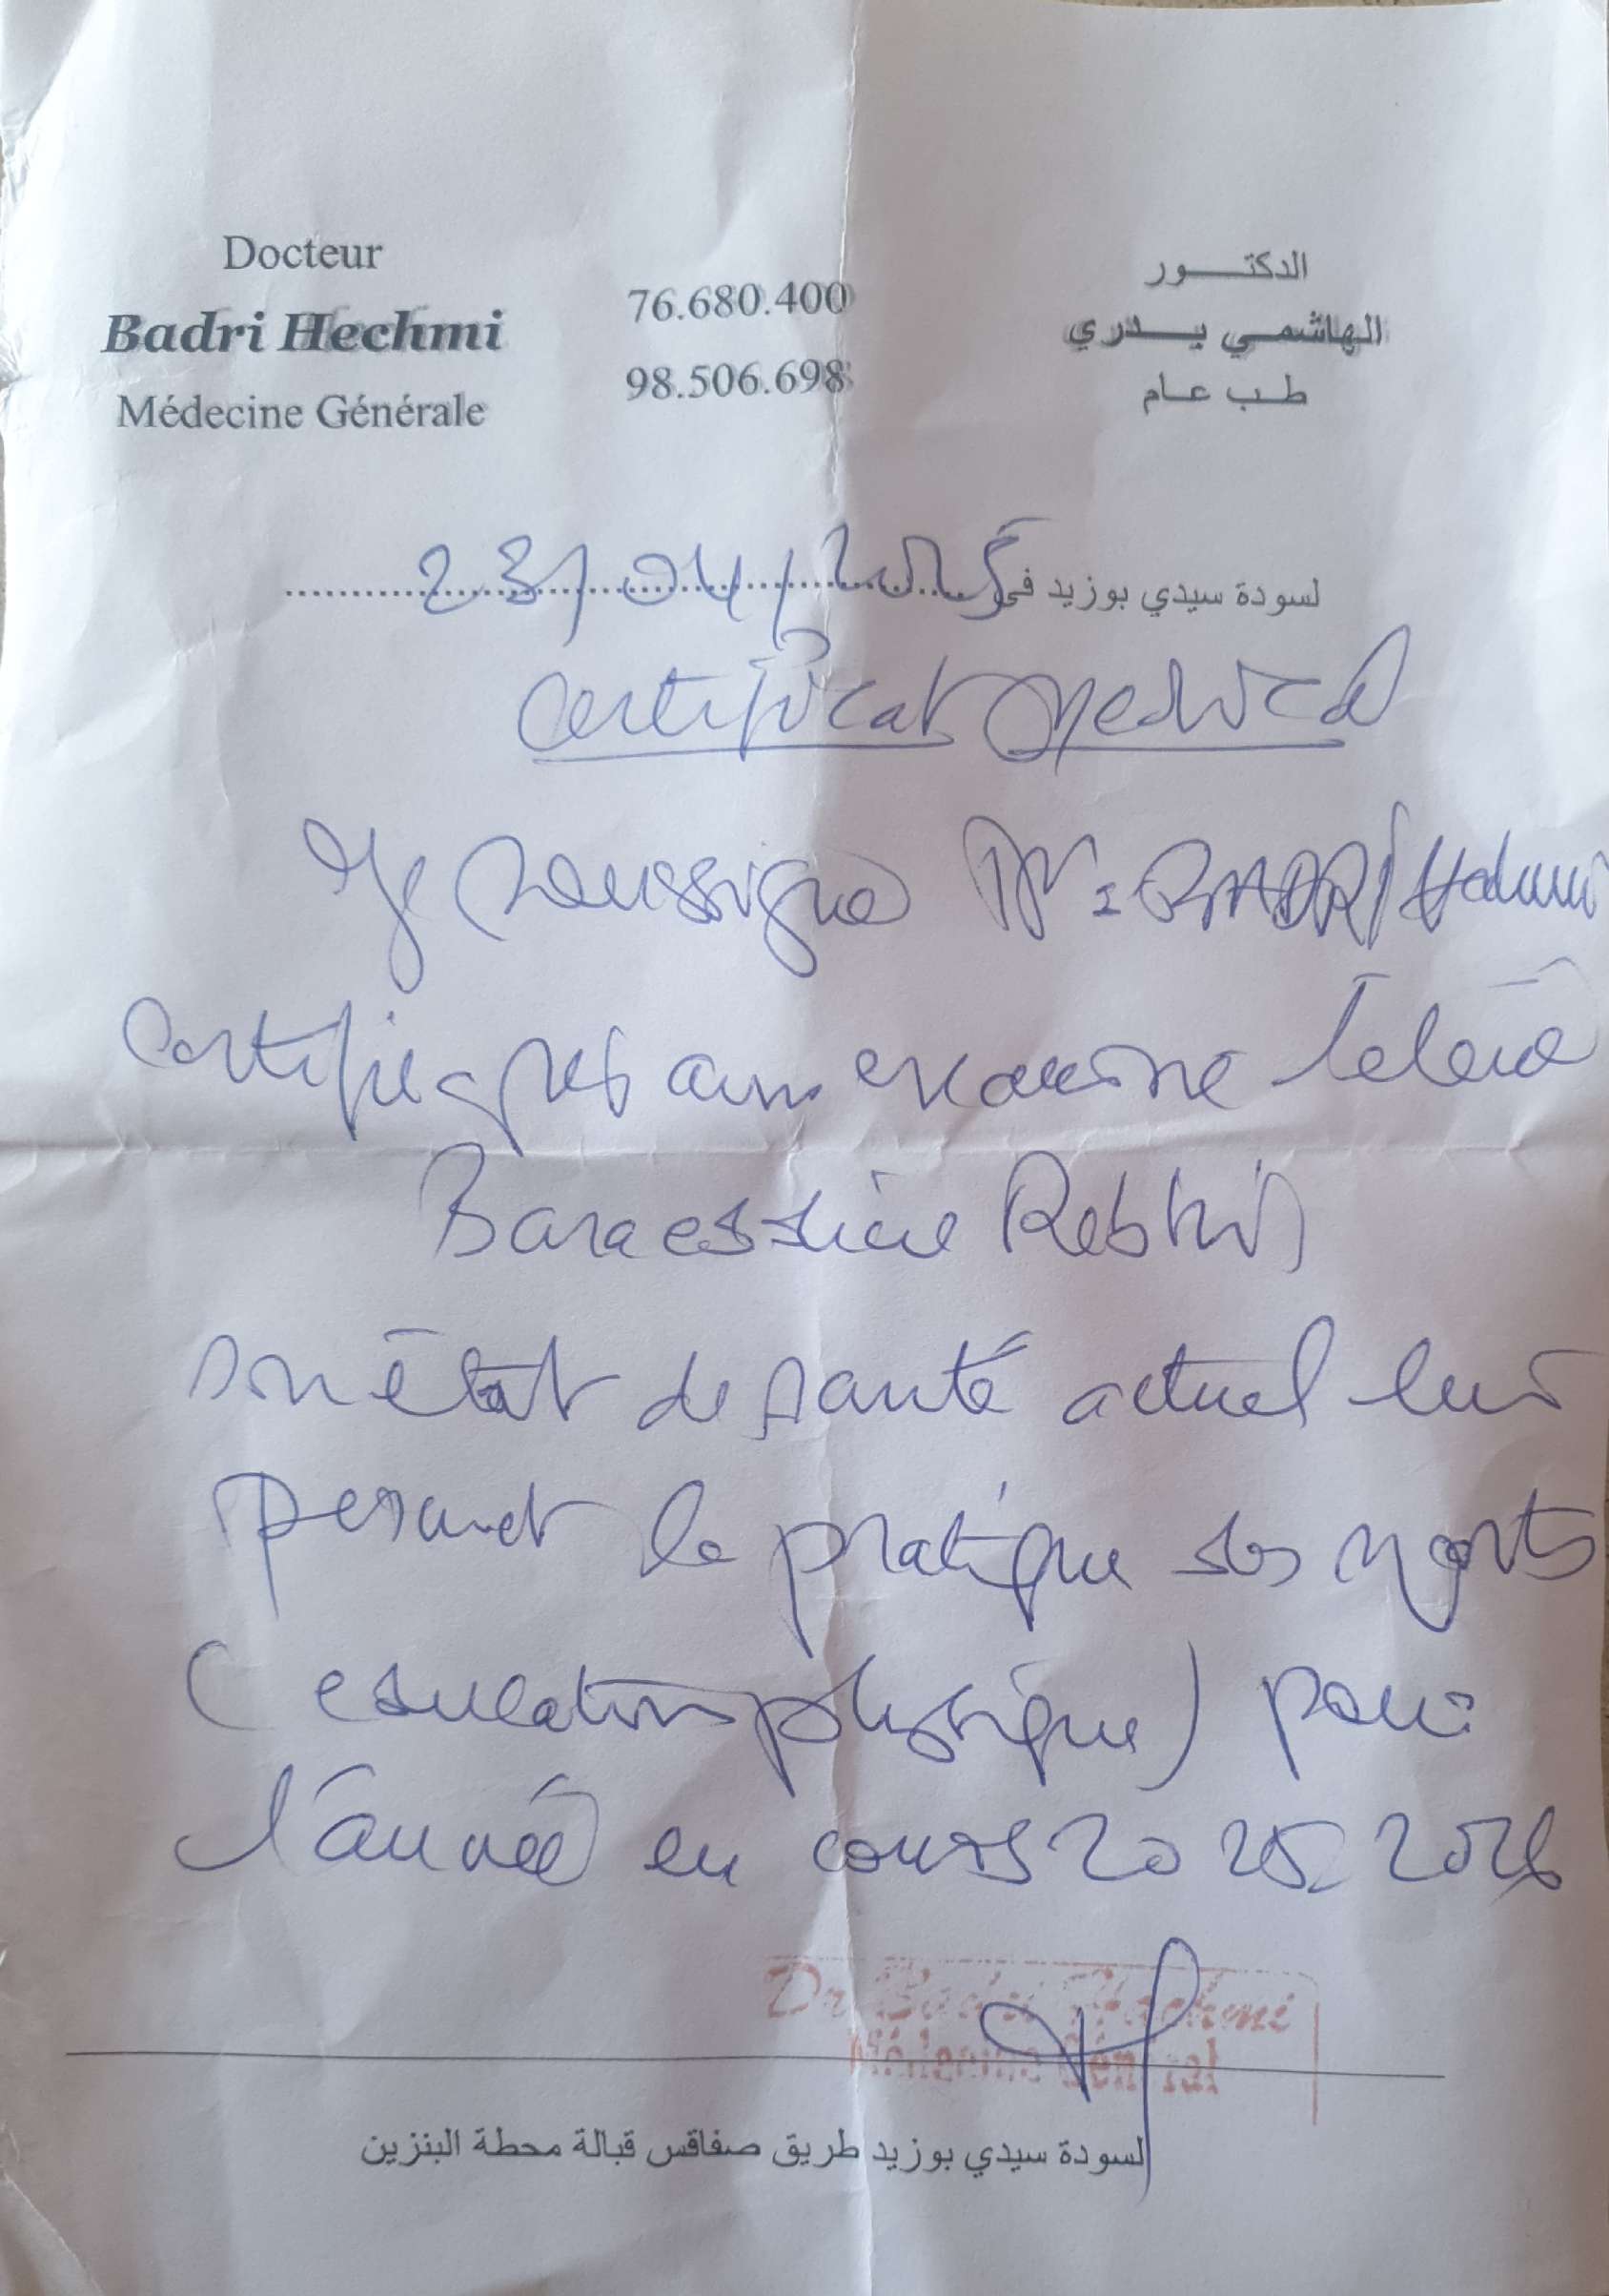 Docteur
Badri Hechmi
Médecine Générale
76.680.400
98.506.698
الدكتـــور
الهاشمـي بـــدري
طـب عـام
لسودة سيدي بوزيد في 23/04/2025
Certificat Medical
Je soussigné Dr: BADRI Hechmi
certifie avoir examiné l'élève
Rebhi
son état de santé actuel lui
permet la pratique des sports
(education physique) pour
l'année en cours 2025-2026
Dr Badri Hechmi
لسودة سيدي بوزيد طريق صفاقس قبالة محطة البنزين